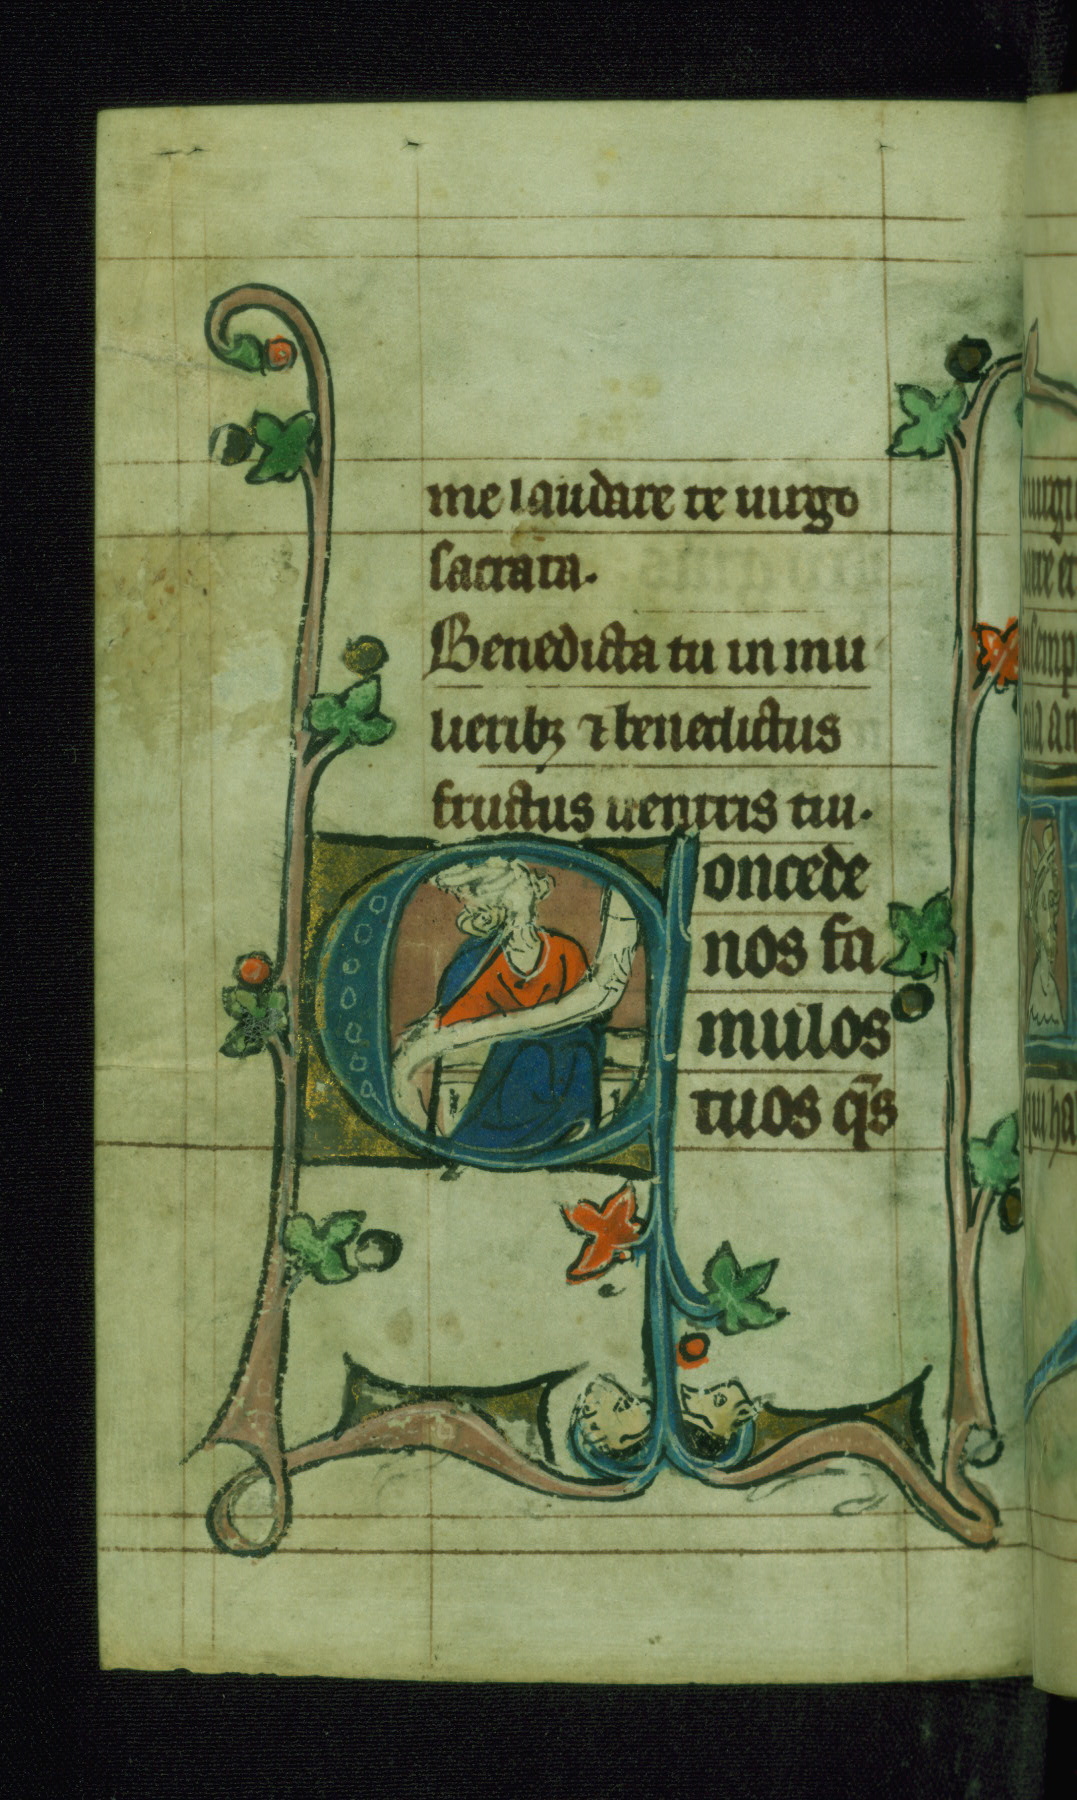 me laudare te uirgo
sacrata.
Benedicta tu in mu
lieribꝫ ⁊ benedictus
fructus uentris tui.
Concede
nos fa
mulos
tuos q̄s